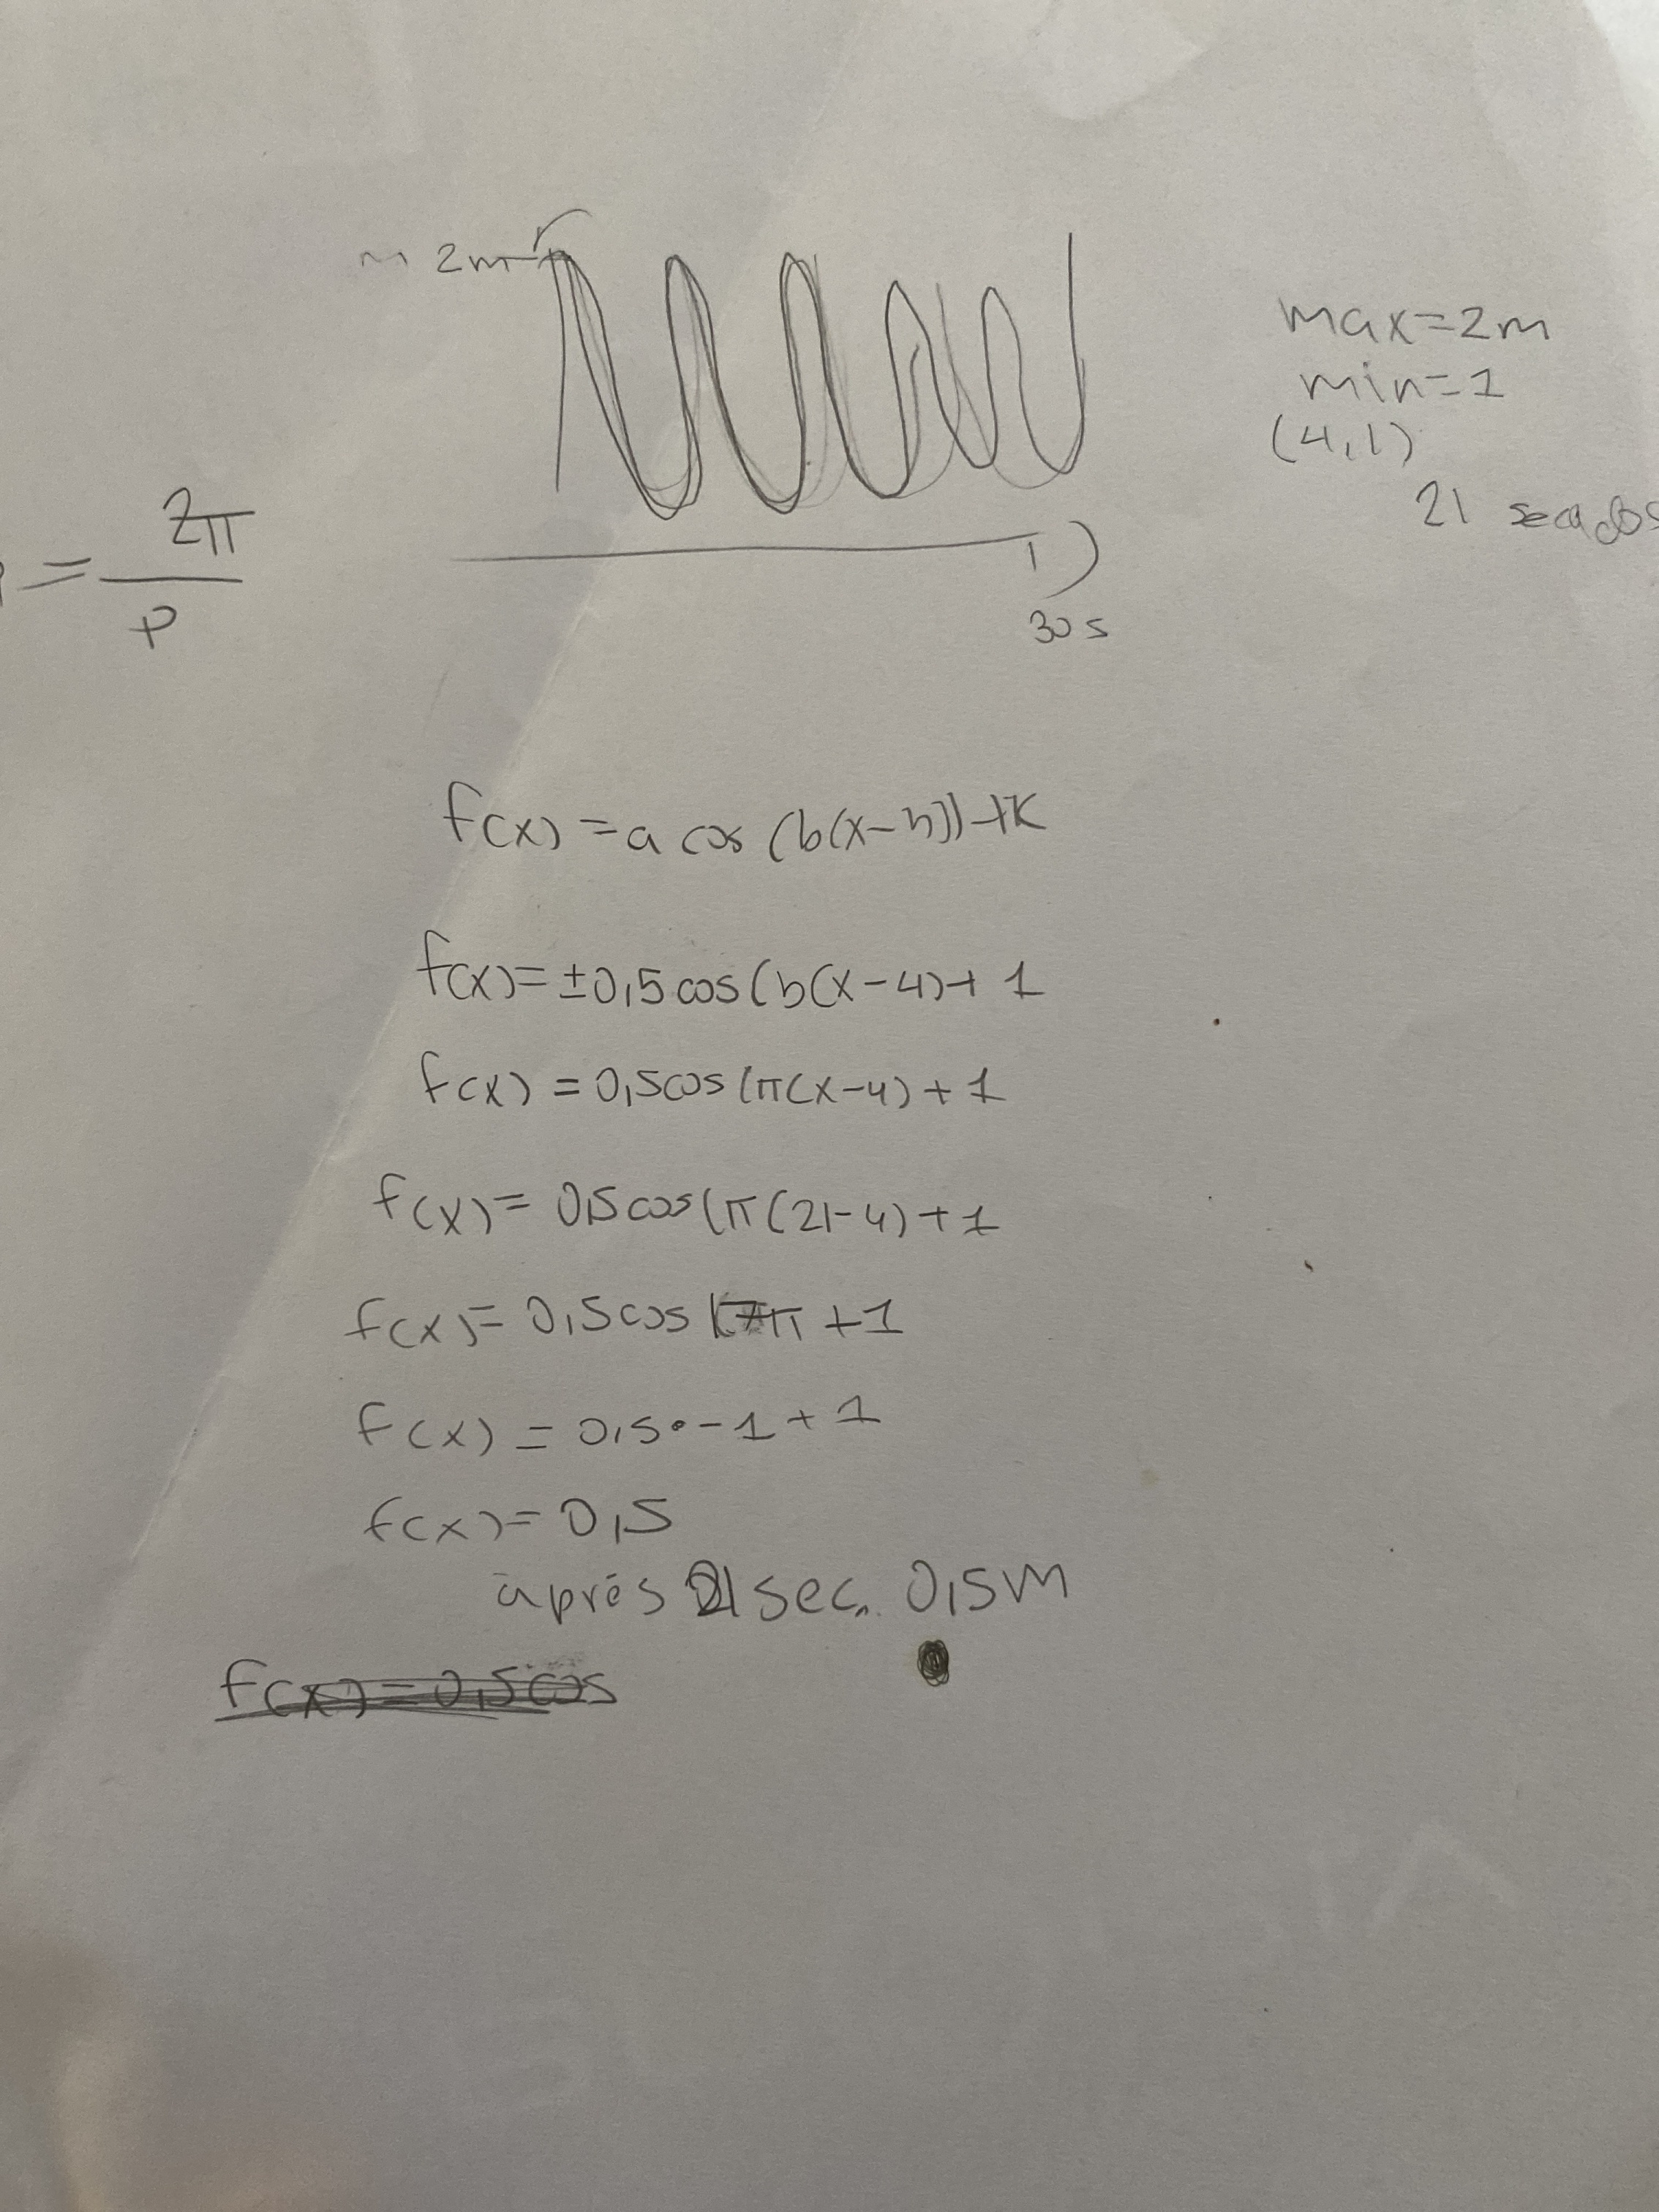 2m
max=2m
min=1
(4,1)
21
= 2π
P
30 s
f(x) = a cos (b(x-h))+K
f(x)= ±0,5 cos (b(x-4)+ 1
f(x) = 0,5cos (π(x-4) + 1
f(x)= 0,5 cos (π(21-4) + 1
f(x)= 0,5 cos 17π +1
f(x) = 0,5•-1 + 1
f(x)= 0,5
après 21 sec. 0,5m
f(x)=0,5cos